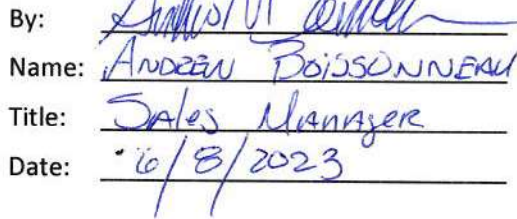 By:
Name: ANDREW BOISSONNEAU
Title: SAles MANAgER
Date: 6/8/2023